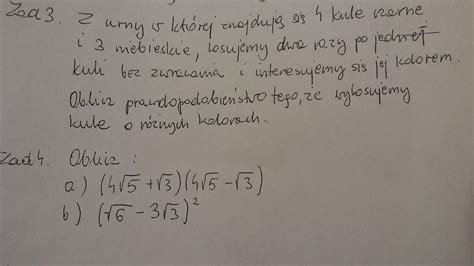 Zad 3. Z urny w której znajdują się 4 kule czarne
i 3 niebieskie, losujemy dwa razy po jednej
kuli bez zwracania i interesujemy się jej kolorem.
Oblicz prawdopodobieństwo tego, że wylosujemy
kule o różnych kolorach.
Zad 4. Oblicz :
a) (4√5 + √3)(4√5 - √3)
b) (√6 - 3√3)²